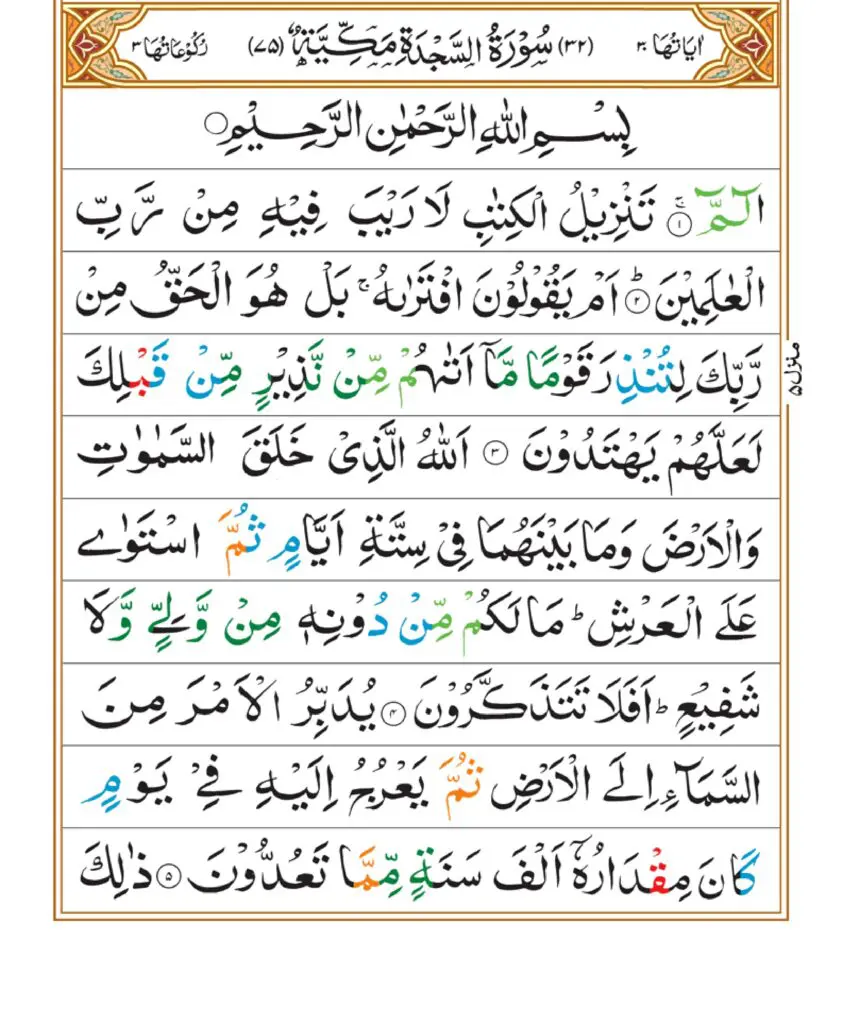 اٰيَاتُهَا ٣٠ (٣٢) سُوْرَةُ السَّجْدَةِ مَكِّيَّةٌ (٧٥) رُكُوْعَاتُهَا ٣
بِسْمِ اللّٰهِ الرَّحْمٰنِ الرَّحِيْمِ۝
الٓمّٓ ۚ﴿۱﴾ تَنْزِيْلُ الْكِتٰبِ لَا رَيْبَ فِيْهِ مِنْ رَّبِّ
الْعٰلَمِيْنَ ؕ﴿۲﴾ اَمْ يَقُوْلُوْنَ افْتَرٰىهُ ۚ بَلْ هُوَ الْحَقُّ مِنْ
رَّبِّكَ لِتُنْذِرَ قَوْمًا مَّاۤ اَتٰىهُمْ مِّنْ نَّذِيْرٍ مِّنْ قَبْلِكَ
لَعَلَّهُمْ يَهْتَدُوْنَ ﴿۳﴾ اَللّٰهُ الَّذِىْ خَلَقَ السَّمٰوٰتِ
وَالْاَرْضَ وَمَا بَيْنَهُمَا فِىْ سِتَّةِ اَيَّامٍ ثُمَّ اسْتَوٰى
عَلَى الْعَرْشِ ؕ مَا لَكُمْ مِّنْ دُوْنِهٖ مِنْ وَّلِىٍّ وَّلَا
شَفِيْعٍ ؕ اَفَلَا تَتَذَكَّرُوْنَ ﴿۴﴾ يُدَبِّرُ الْاَمْرَ مِنَ
السَّمَآءِ اِلَى الْاَرْضِ ثُمَّ يَعْرُجُ اِلَيْهِ فِىْ يَوْمٍ
كَانَ مِقْدَارُهٗۤ اَلْفَ سَنَةٍ مِّمَّا تَعُدُّوْنَ ﴿۵﴾ ذٰلِكَ
منزل ۵